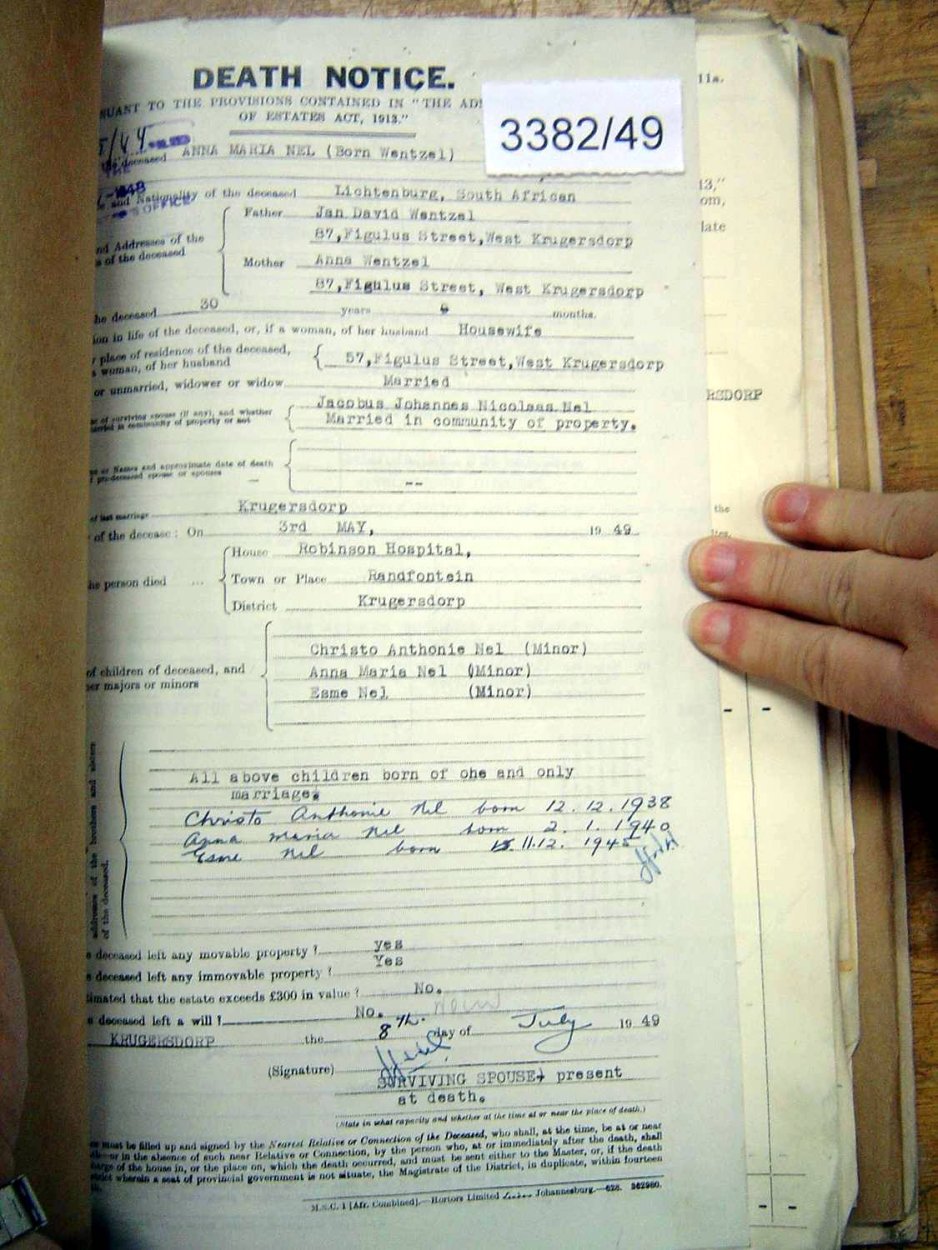 DEATH NOTICE.
SUANT TO THE PROVISIONS CONTAINED IN "THE AD
OF ESTATES ACT, 1913."
3382/49
deceased ANNA MARIA NEL (Born Wentzel)
and Nationality of the deceased Lichtenburg, South African
OFFICE
Father Jan David Wentzel
87,Figulus Street,West Krugersdorp
nd Addresses of the
s of the deceased
Mother Anna Wentzel
87,Figulus Street, West Krugersdorp
he deceased 30 years 9 months.
ion in life of the deceased, or, if a woman, of her husband Housewife
r place of residence of the deceased,
woman, of her husband 57,Figulus Street,West Krugersdorp
or unmarried, widower or widow Married
me of surviving spouse (if any), and whether
married in community of property or not
Jacobus Johannes Nicolaas Nel
Married in community of property.
me or Names and approximate date of death
pre-deceased spouse or spouses
--
of last marriage Krugersdorp
of the decease: On 3rd MAY, 19 49
House Robinson Hospital,
he person died ... Town or Place Randfontein
District Krugersdorp
Christo Anthonie Nel (Minor)
of children of deceased, and
er majors or minors
Anna Maria Nel (Minor)
Esme Nel (Minor)
addresses of the brothers and sisters
of the deceased.
All above children born of ohe and only
marriage.
Christo Anthonie Nel born 12.12.1938
Anna Maria Nel born 2.1.1940
Esme Nel born 11.12. 1945
s deceased left any movable property? yes
s deceased left any immovable property? Yes
timated that the estate exceeds £300 in value? No.
s deceased left a will? No.
KRUGERSDORP the 8th. day of July 19 49
(Signature)
SURVIVING SPOUSE, present
at death.
(State in what capacity and whether at the time at or near the place of death.)
ce must be filled up and signed by the Nearest Relative or Connection of the Deceased, who shall, at the time, be at or near
or in the absence of such near Relative or Connection, by the person who, at or immediately after the death, shall
harge of the house in, or the place on, which the death occurred, and must be sent either to the Master, or, if the death
trict wherein a seat of provincial government is not situate, the Magistrate of the District, in duplicate, within fourteen
M.S.C. 1 [Afr. Combined].—Hortors Limited Johannesburg.—628. 362980.
11a.
13,"
om,
late
RSDORP
the